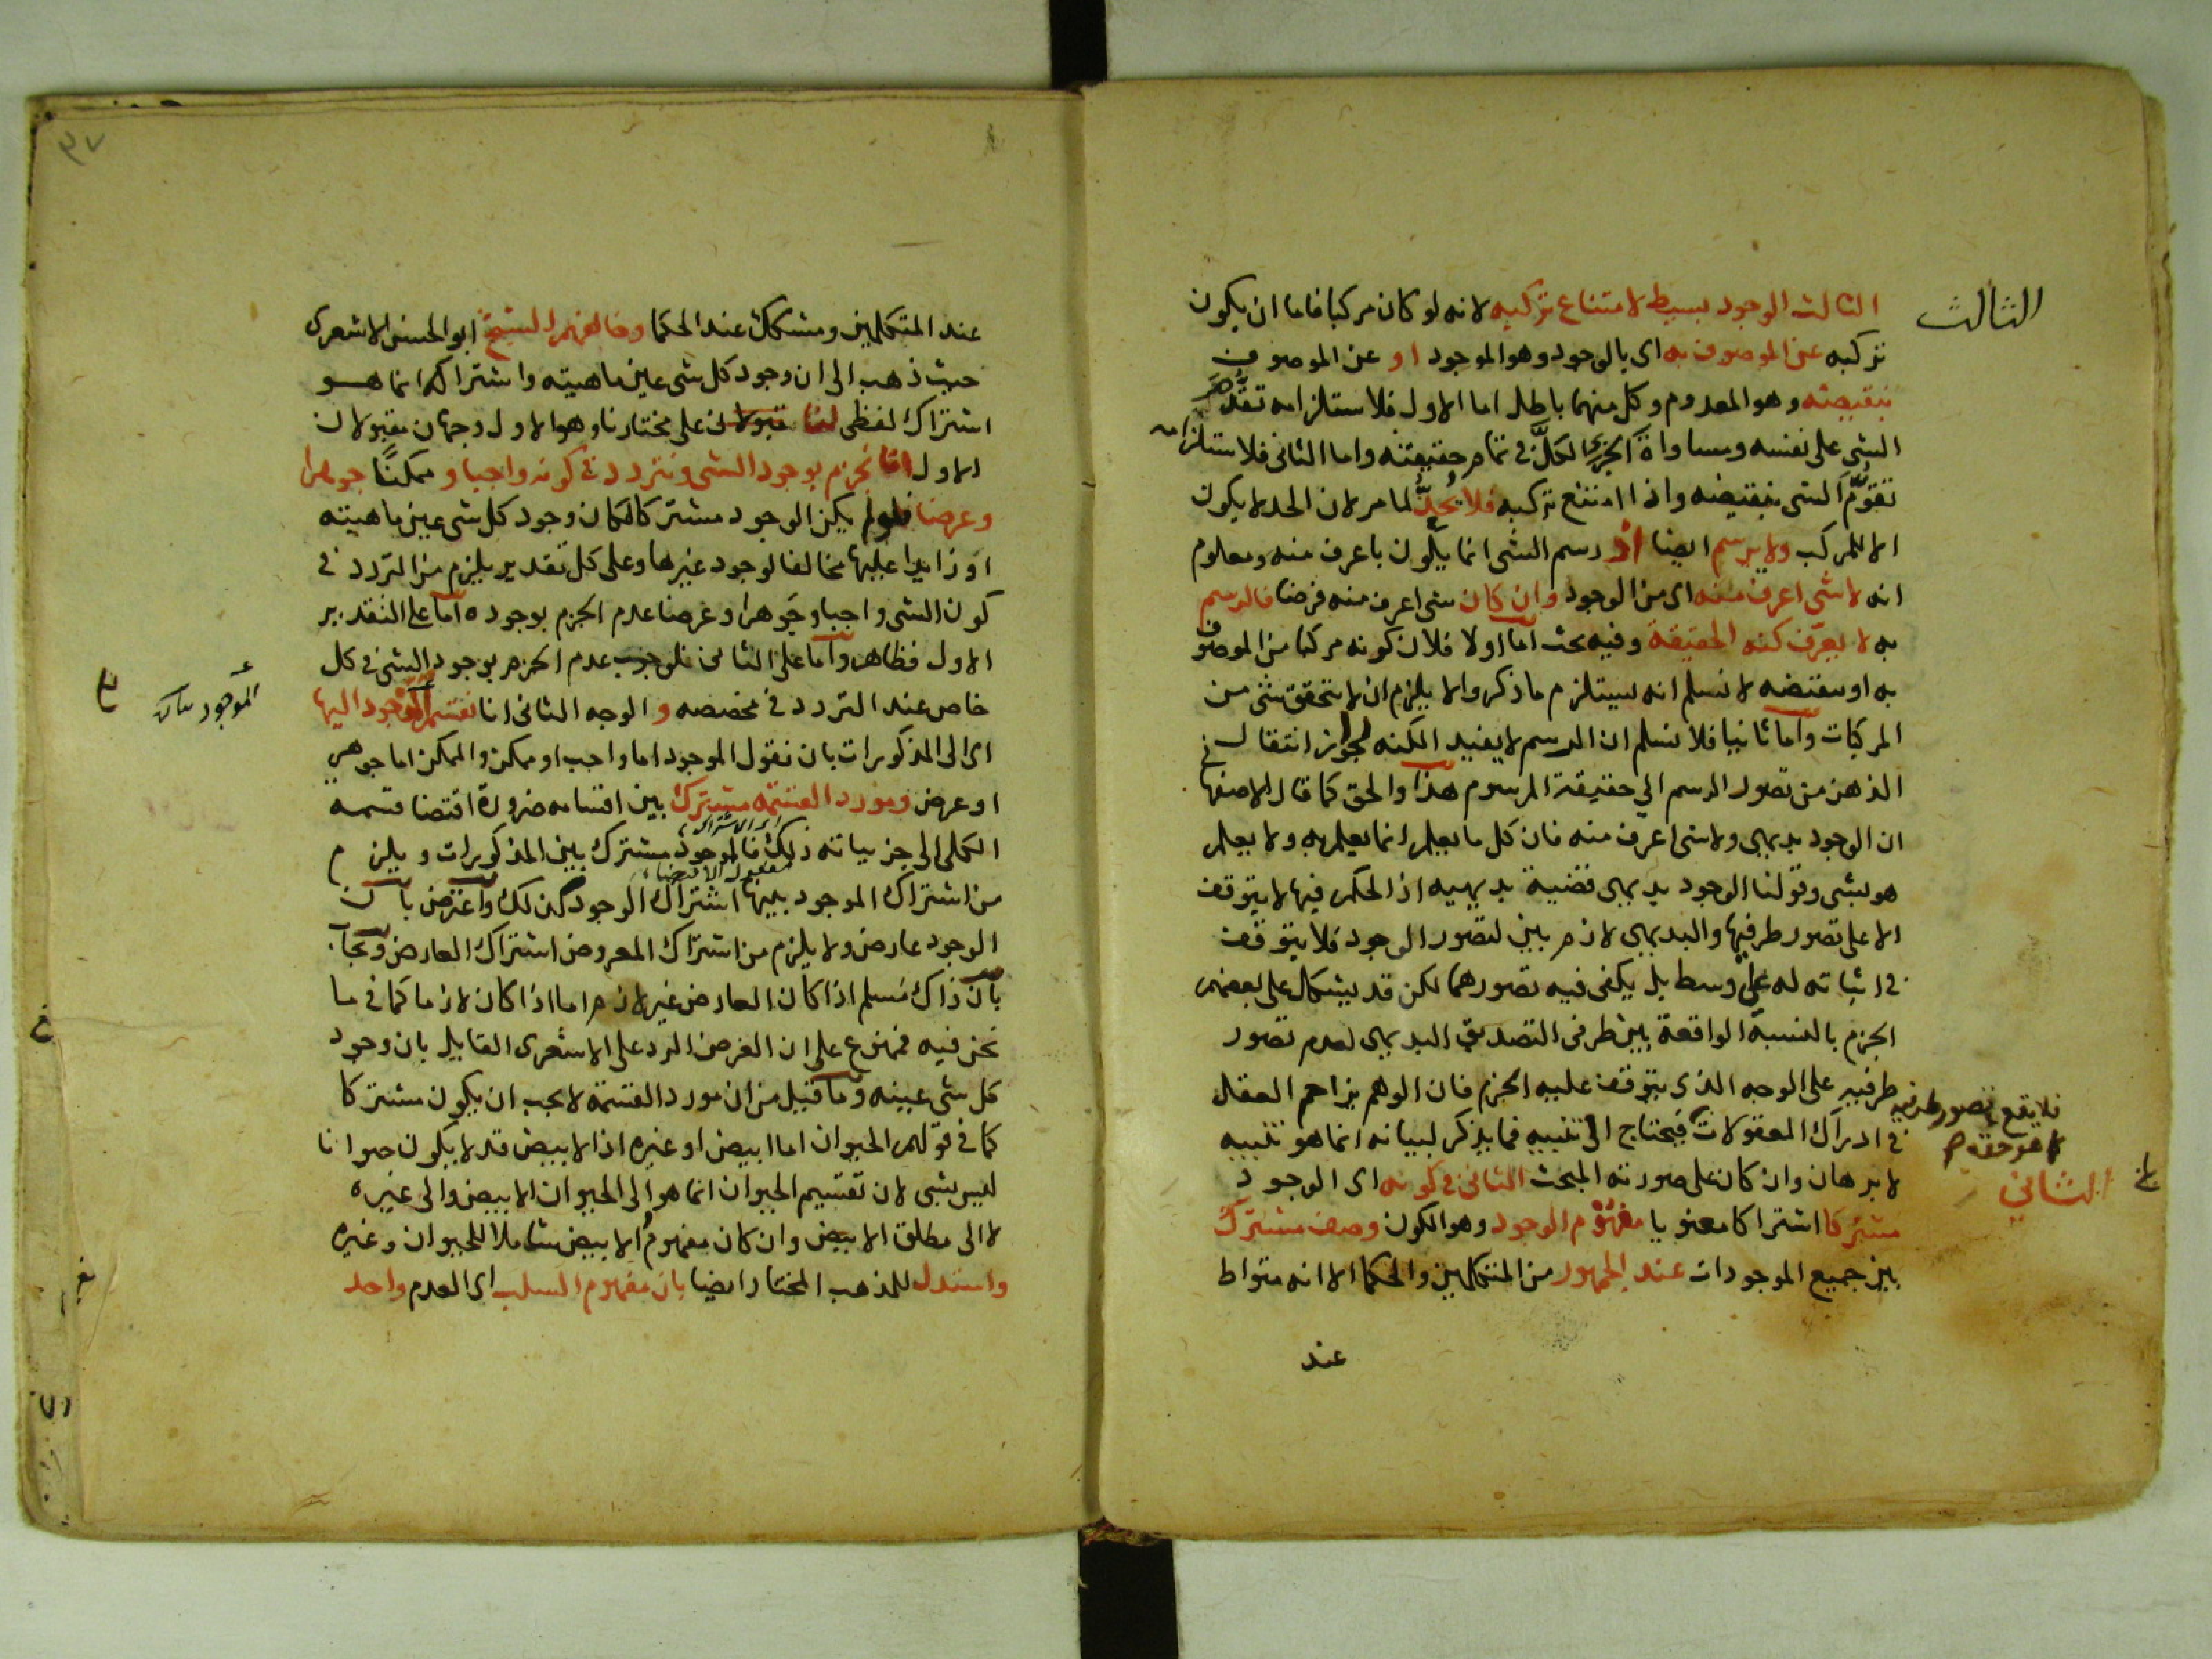 الثالث
الثالث الوجود بسيط لامتناع تركبه لانه لو كان مركبا فاما ان يكون
تركبه عن الموصوف به اى بالوجود وهو الموجود او عن الموصوف
بنقيضه وهو المعدوم وكل منهما باطل اما الاول فلاستلزامه تقدم
الشى على نفسه ومساواة الجزء لكل فى تمام حقيقته واما الثانى فلاستلزامه
تقوّم الشى بنقيضه واذا امتنع تركبه فلا يُحدُّ لما مر لان الحد لا يكون
الا للمركب ولا يرسم ايضا اذ رسم الشى انما يكون باعرف منه ومعلوم
انه لا شى اعرف منه اى من الوجود وان كان شى اعرف منه فرضا فالرسم
به لا يعرّف كنه الحقيقة وفيه بحث اما اولا فلان كونه مركبا من الموصوف
به او بنقيضه لا نسلم انه يستلزم ما ذكر والا يلزم ان لا يتحقق شى من
المركبات واما ثانيا فلا نسلم ان الرسم لا يفيد الكنه لجواز انتقال
الذهن من تصور الرسم الى حقيقة المرسوم هذا والحق كما قال الاصفهانى
ان الوجود بديهى ولا شى اعرف منه فان كل ما يعلم انما يعلم به ولا يعلم
هو بشى وقولنا الوجود بديهى قضية بديهيه اذ الحكم فيها لا يتوقف
الا على تصور طرفيها والبديهى لازم بين لتصور الوجود فلا يتوقف
فى اثباته له على وسط بل يكفى فيه تصورهما لكن قد يشكل على بعضهم
الجزم بالنسبة الواقعة بين طرفى التصديق البديهى لعدم تصور
طرفيه على الوجه الذى يتوقف عليه الجزم فان الوهم يزاحم العقل
فلا يقع تصور طرفيه
كما هو حقه
فى ادراك المعقولات فيحتاج الى تنبيه فما يذكر لبيانه انما هو تنبيه
لا برهان وان كان على صورته المبحث الثانى فى كونه اى الوجود
الثانى
مشتركا اشتراكا معنويا مفهوم الوجود وهو الكون وصف مشترك
بين جميع الموجودات عند الجمهور من المتكلمين والحكما الا انه متواط
عند
٣٧
عند المتكلمين ومشكك عند الحكما وخالفهم الشيخ ابو الحسن الاشعرى
حيث ذهب الى ان وجود كل شى عين ماهيته واشتراكه انما هو
اشتراك لفظى لنا على مختارنا وهو الاول وجهان مقبولان
الاول انا نجزم بوجود الشى ونتردد فى كونه واجبا وممكنًا جوهرا
وعرضا فلو لم يكن الوجود مشتركا لكان وجود كل شى عين ماهيته
او زايدا عليها مخالفا لوجود غيرها وعلى كل تقدير يلزم من التردد فى
كون الشى واجبا وجوهرا وعرضا عدم الجزم بوجوده اما على التقدير
الاول فظاهر واما على الثانى فلوجوب عدم الجزم بوجود الشى فى كل
خاص عند التردد فى مخصصه و الوجه الثانى انا نقسم الموجود اليها
الموجود
اى الى المذكورات بان نقول الموجود اما واجب او ممكن والممكن اما جوهر
او عرض ومورد القسمة مشترك بين اقسامه ضرورة اقتضا قسمة
الكلى الى جزئياته ذلك فالموجود مشترك بين المذكورات ويلزم
اى الاشتراك
مفعول الاقتضاء
من اشتراك الموجود بينها اشتراك الوجود كذلك واعترض بان
الوجود عارض ولا يلزم من اشتراك المعروض اشتراك العارض ويجاب
بان ذاك مسلم اذا كان العارض غير لازم اما اذا كان لازما كما فى ما
نحن فيه فممنوع على ان الغرض الرد على الاشعرى القايل بان وجود
كل شى عينه وما قيل من ان مورد القسمة لا يجب ان يكون مشتركا
كما فى قولهم الحيوان اما ابيض او غيره اذ الابيض قد لا يكون حيوانا
ليس بشى لان تقسيم الحيوان انما هو الى الحيوان الابيض والى غيره
لا الى مطلق الابيض وان كان مفهوم الابيض شاملا للحيوان وغيره
واستدل للمذهب المختار ايضا بان مفهوم السلب اى العدم واحد